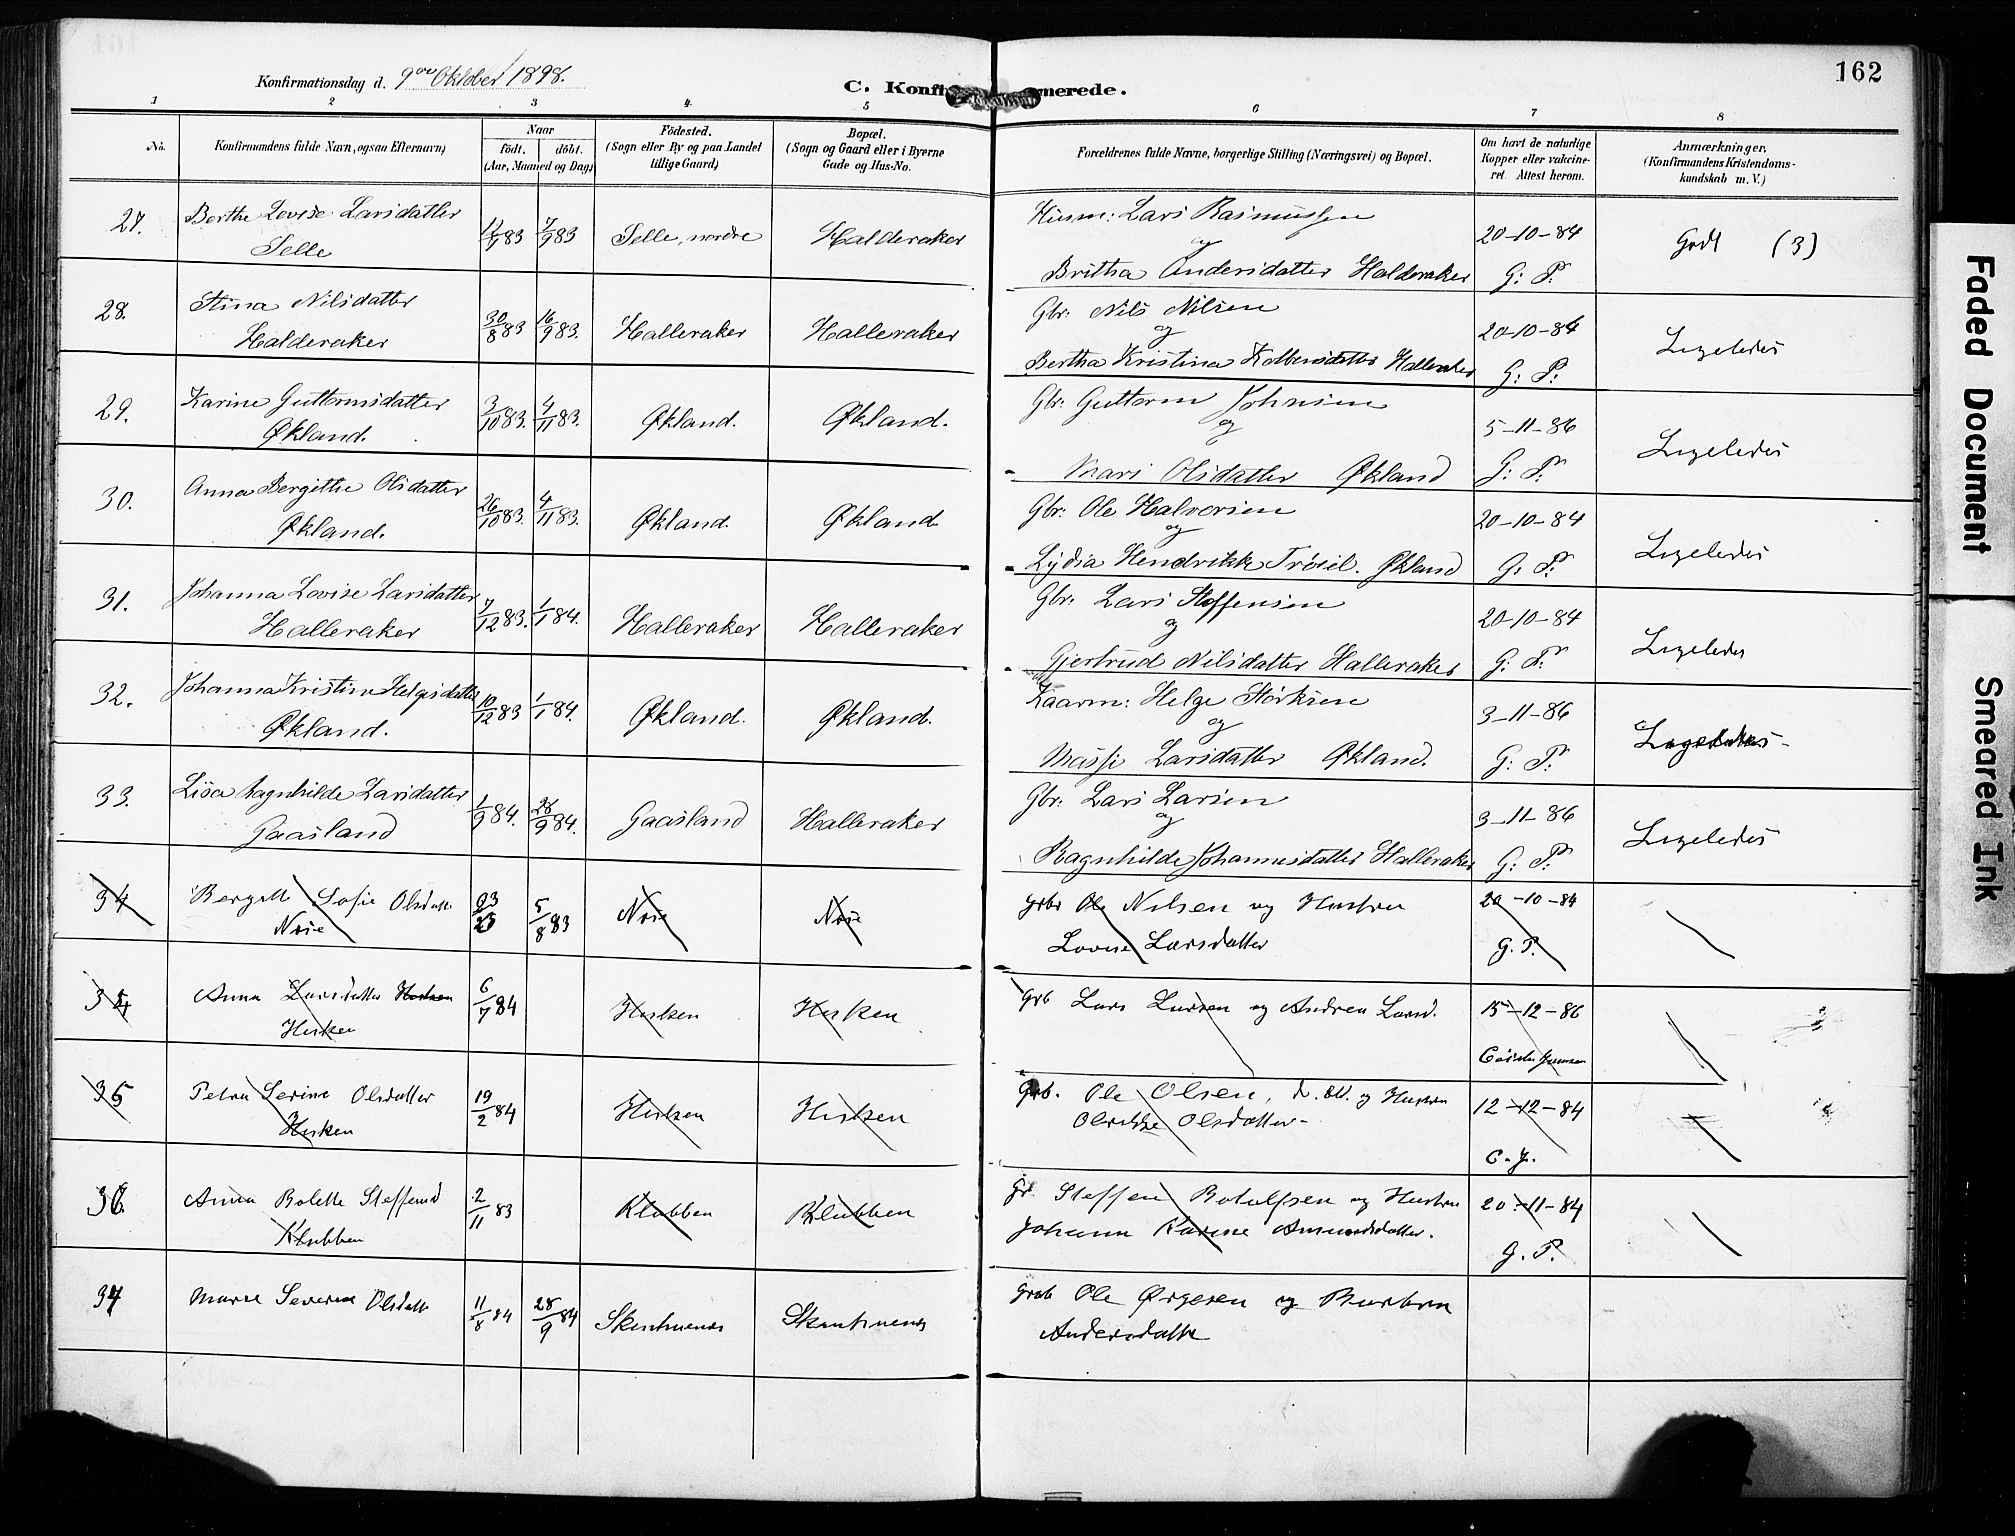 162
Konfirmationsdag d. 9de Oktober 1898.
C. Konfirmerede.
1 2 3 4 5 6 7 8
No.
Konfirmandens fulde Navn, ogsaa Efternavn)
Naar
født. døbt.
(Aar, Maaned og Dag)
Fødested.
(Sogn eller By og paa Landet
tillige Gaard)
Bopæl.
(Sogn og Gaard eller i Byerne
Gade og Hus-No.
Forældrenes fulde Navne, borgerlige Stilling (Næringsvei) og Bopæl.
Om havt de naturlige
Kopper eller vakcine-
ret. Attest herom.
Anmærkninger.
(Konfirmandens Kristendoms-
kundskab m. V.)
27. Berthe Lovise Larsdatter
Selle
83 7/9 83 Selle, nordre Halderaker
Husm: Lars Rasmussen
og
Britha Andersdatter Halderaker
20-10-84
G: P.
Godt (3)
28. Stina Nilsdatter
Halderaker
30/8 83 16/9 83. Halleraker Halleraker
Gbr: Nils Nilsen
og
Bertha Kristina Halleraker
20-10-84
G: P:
Ligeledes
29. Karine Guttormsdatter
Økland.
3/10 83. 4/11 83. Økland. Økland.
Gbr: Guttorm Johnsen
og
Mari Olsdatter Økland
5-11-86
G: P.
Ligeledes
30. Anna Bergithe Olsdatter
Økland.
26/10 83. 4/11 83. Økland. Økland.
Gbr: Ole Halvorsen
og
Lydia Hendrikke Økland
20-10-84
G. P.
Ligeledes
31. Johanna Lovise Larsdatter
Halleraker
7/12 83. 1/1 84. Halleraker Halleraker
Gbr: Lars Steffensen
og
Gjertrud Nilsdatter Halleraker
20-10-84
G. P.
Ligeledes
32. Johanna Kristine Helgesdatter
Økland.
10/12 83 1/1 84. Økland. Økland.
Kaarm: Helge Størksen
og
Massi Larsdatter Økland.
3-11-86
G: P.
Ligeledes
33. Lisa Ragnhilde Larsdatter
Gaasland
1/9 84. 28/9 84. Gaasland Halleraker
Gbr: Lars Larsen
og
Ragnhilde Johannesdatter Halleraker
3-11-86
G: P.
Ligeledes
34 Bergitte Sofie Olsdatt
Noie
5/8 83 Noie Noie
Grbr Ole Nilsen og Hustru
Lovise Larsdatter
20-10-84
G. P.
34 Anna Larsdatter
Hisken
6/7 84 Hisken Hisken
Grb Lars Larsen og Andrea Larsd.
15-12-86
35 Petra Serine Olsdatter
Hisken
19/2 84 Hisken Hisken
Grb. Ole Olsen, og Hustru
Olrikke Olsdatter
12-12-84
C. J.
36 Anna Bolette Steffensd
Klubben
2/11 83 Klubben Klubben
Gr. Steffen Botolfsen og Hustru
Johanna Karine Amundsdatter.
20-11-84
G. P.
37 Marie Severine Olsdatt
11/8 84 28/9 84
Grb Ole Ørgesen og
Andersdatter
Faded Document
Smeared Ink